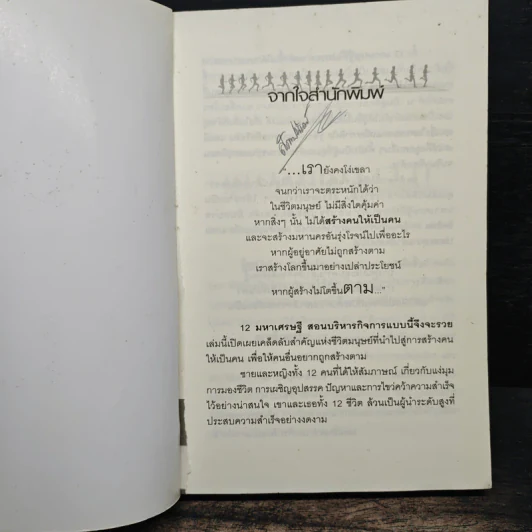 จากใจสำนักพิมพ์
"...เรายังคงโง่เขลา
จนกว่าเราจะตระหนักได้ว่า
ในชีวิตมนุษย์ ไม่มีสิ่งใดคุ้มค่า
หากสิ่งๆ นั้น ไม่ได้สร้างคนให้เป็นคน
และจะสร้างมหานครอันรุ่งโรจน์ไปเพื่ออะไร
หากผู้อยู่อาศัยไม่ถูกสร้างตาม
เราสร้างโลกขึ้นมาอย่างเปล่าประโยชน์
หากผู้สร้างไม่โตขึ้นตาม..."
12 มหาเศรษฐี สอนบริหารกิจการแบบนี้จึงจะรวย
เล่มนี้เปิดเผยเคล็ดลับสำคัญแห่งชีวิตมนุษย์ที่นำไปสู่การสร้างคน
ให้เป็นคน เพื่อให้คนอื่นอยากถูกสร้างตาม
ชายและหญิงทั้ง 12 คนที่ได้ให้สัมภาษณ์ เกี่ยวกับแง่มุม
การมองชีวิต การเผชิญอุปสรรค ปัญหาและการไขว่คว้าความสำเร็จ
ไว้อย่างน่าสนใจ เขาและเธอทั้ง 12 ชีวิต ล้วนเป็นผู้นำระดับสูงที่
ประสบความสำเร็จอย่างงดงาม